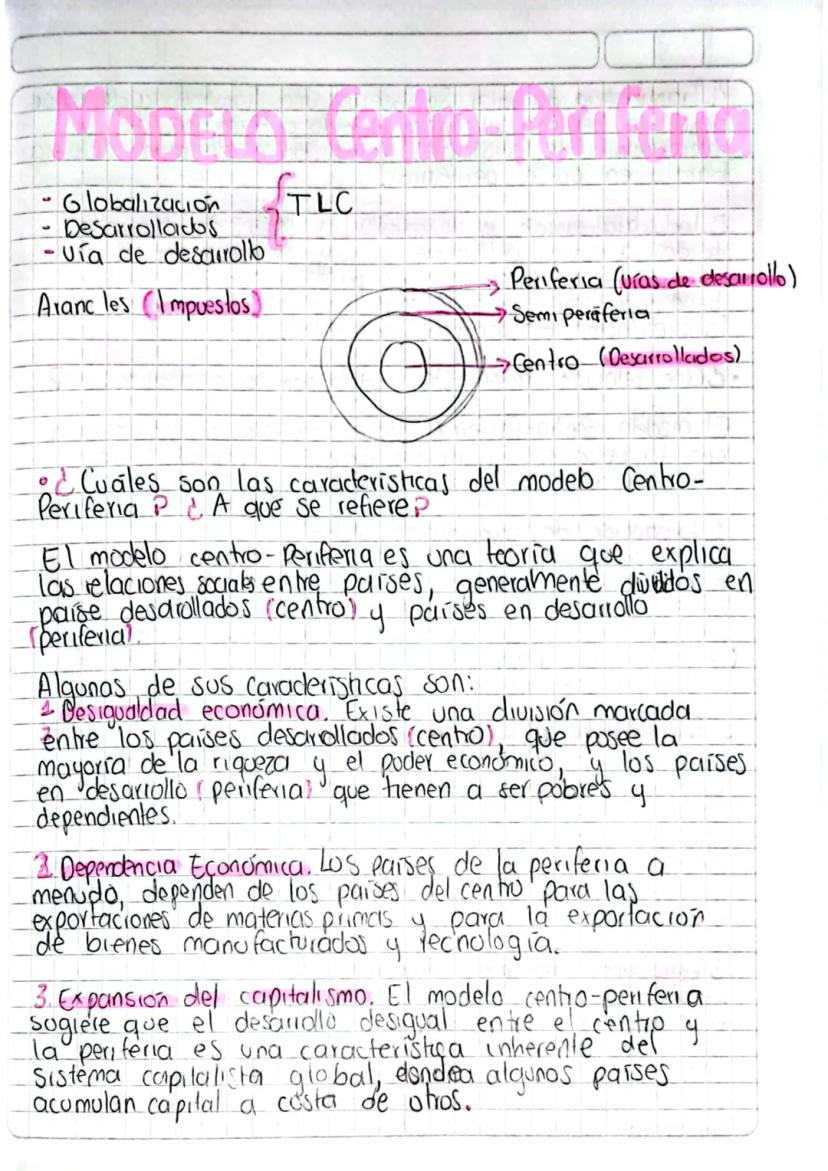 MODELO Centro-Periferia
- Globalización { TLC
- Desarrollados
- Vía de desarrollo
Periferia (vías de desarrollo)
Aranc les (Impuestos)
Semi periferia
Centro (Desarrollados)
• ¿Cuáles son las características del modelo Centro-
Periferia? ¿A que se refiere?
El modelo centro-Periferia es una teoría que explica
las relaciones sociales entre países, generalmente divididos en
paíse desdrollados (centro) y países en desarrollo
(periferia).
Algunas de sus características son:
1 Desigualdad económica. Existe una división marcada
entre los países desarollados (centro), que posee la
mayoría de la riqueza y el poder económico, y los países
en desarrollo (periferia) que tienen a ser pobres y
dependientes.
2. Dependencia Económica. Los países de la periferia a
menudo, dependen de los países del centro para las
exportaciones de materias primas y para la exportación
de bienes manufacturados y tecnología.
3. Expansión del capitalismo. El modelo centro-periferia
sugiere que el desarrollo desigual entre el centro y
la periferia es una característica inherente del
sistema capitalista global, donde algunos países
acumulan capital a costa de otros.